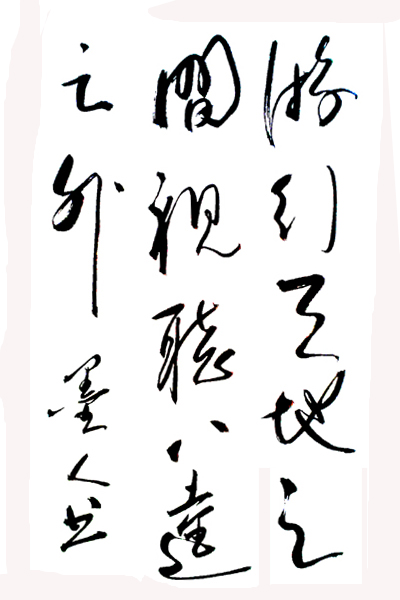 游行天地之
間視聽八達
之外 墨人书